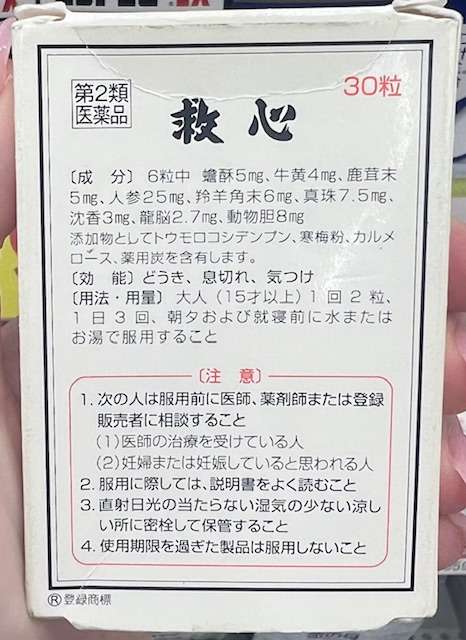 第2類
医薬品
救心
30粒
〔成 分〕6粒中 蟾酥5mg、牛黄4mg、鹿茸末
5mg、人参25mg、羚羊角末6mg、真珠7.5mg、
沈香3mg、龍脳2.7mg、動物胆8mg
添加物としてトウモロコシデンプン、寒梅粉、カルメ
ロース、薬用炭を含有します。
〔効 能〕どうき、息切れ、気つけ
〔用法・用量〕大人(15才以上)1回2粒、
1日3回、朝夕および就寝前に水または
お湯で服用すること
〔注 意〕
1. 次の人は服用前に医師、薬剤師または登録
販売者に相談すること
(1)医師の治療を受けている人
(2)妊婦または妊娠していると思われる人
2. 服用に際しては、説明書をよく読むこと
3. 直射日光の当たらない湿気の少ない涼し
い所に密栓して保管すること
4. 使用期限を過ぎた製品は服用しないこと
®登録商標